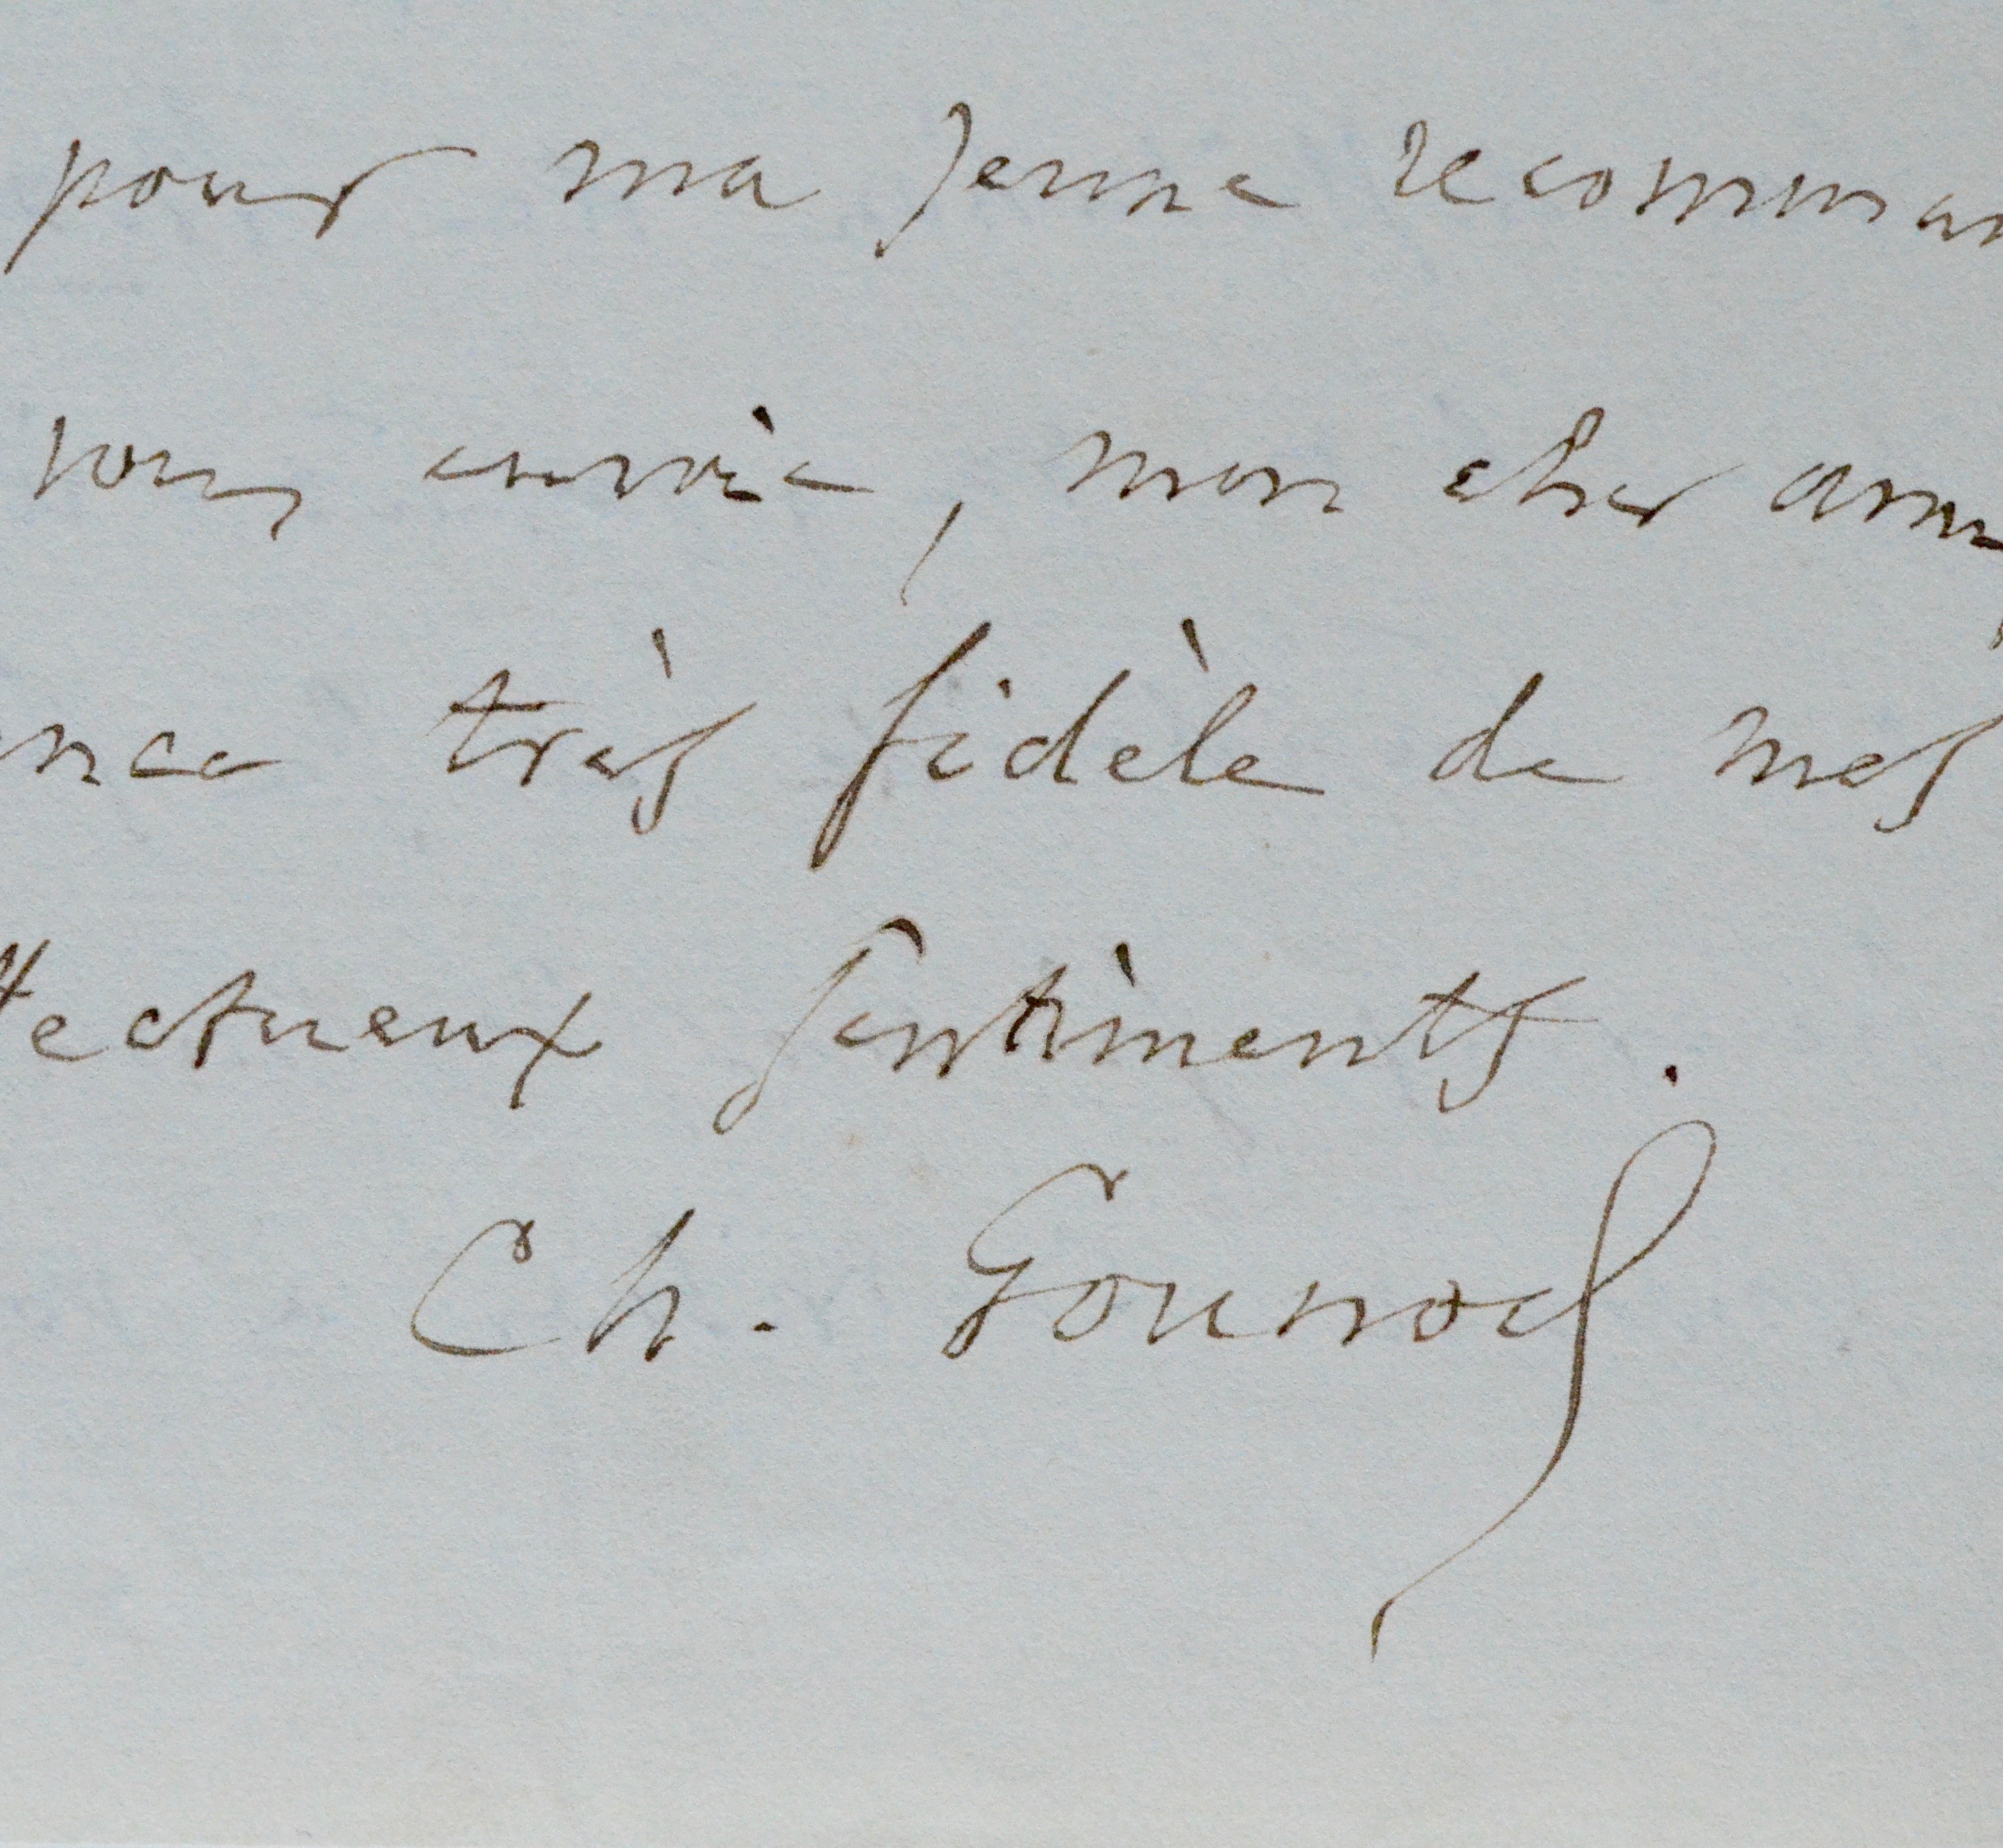 pour ma jeune recomman
vous envoie, mon cher ami,
ence très fidèle de mes
ffectueux sentiments.
Ch. Gounod